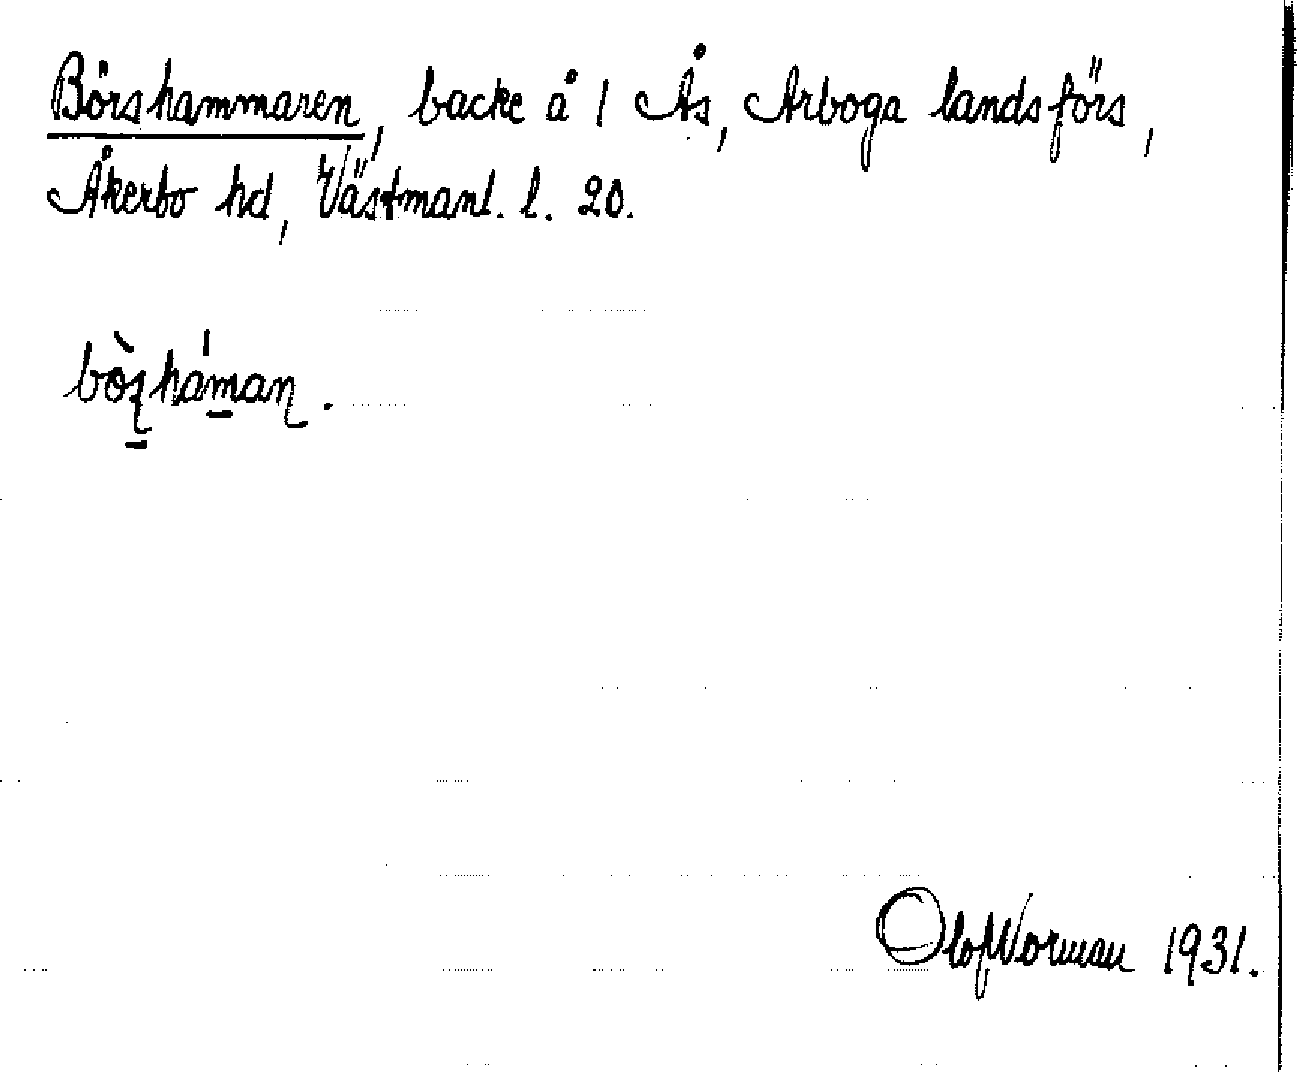 Börshammaren, backe å 1 Ås, Arboga landsförs,
Åkerbo hd, Västmanl. l. 20.
bòʂhámaɳ.
Olof Norman 1931.